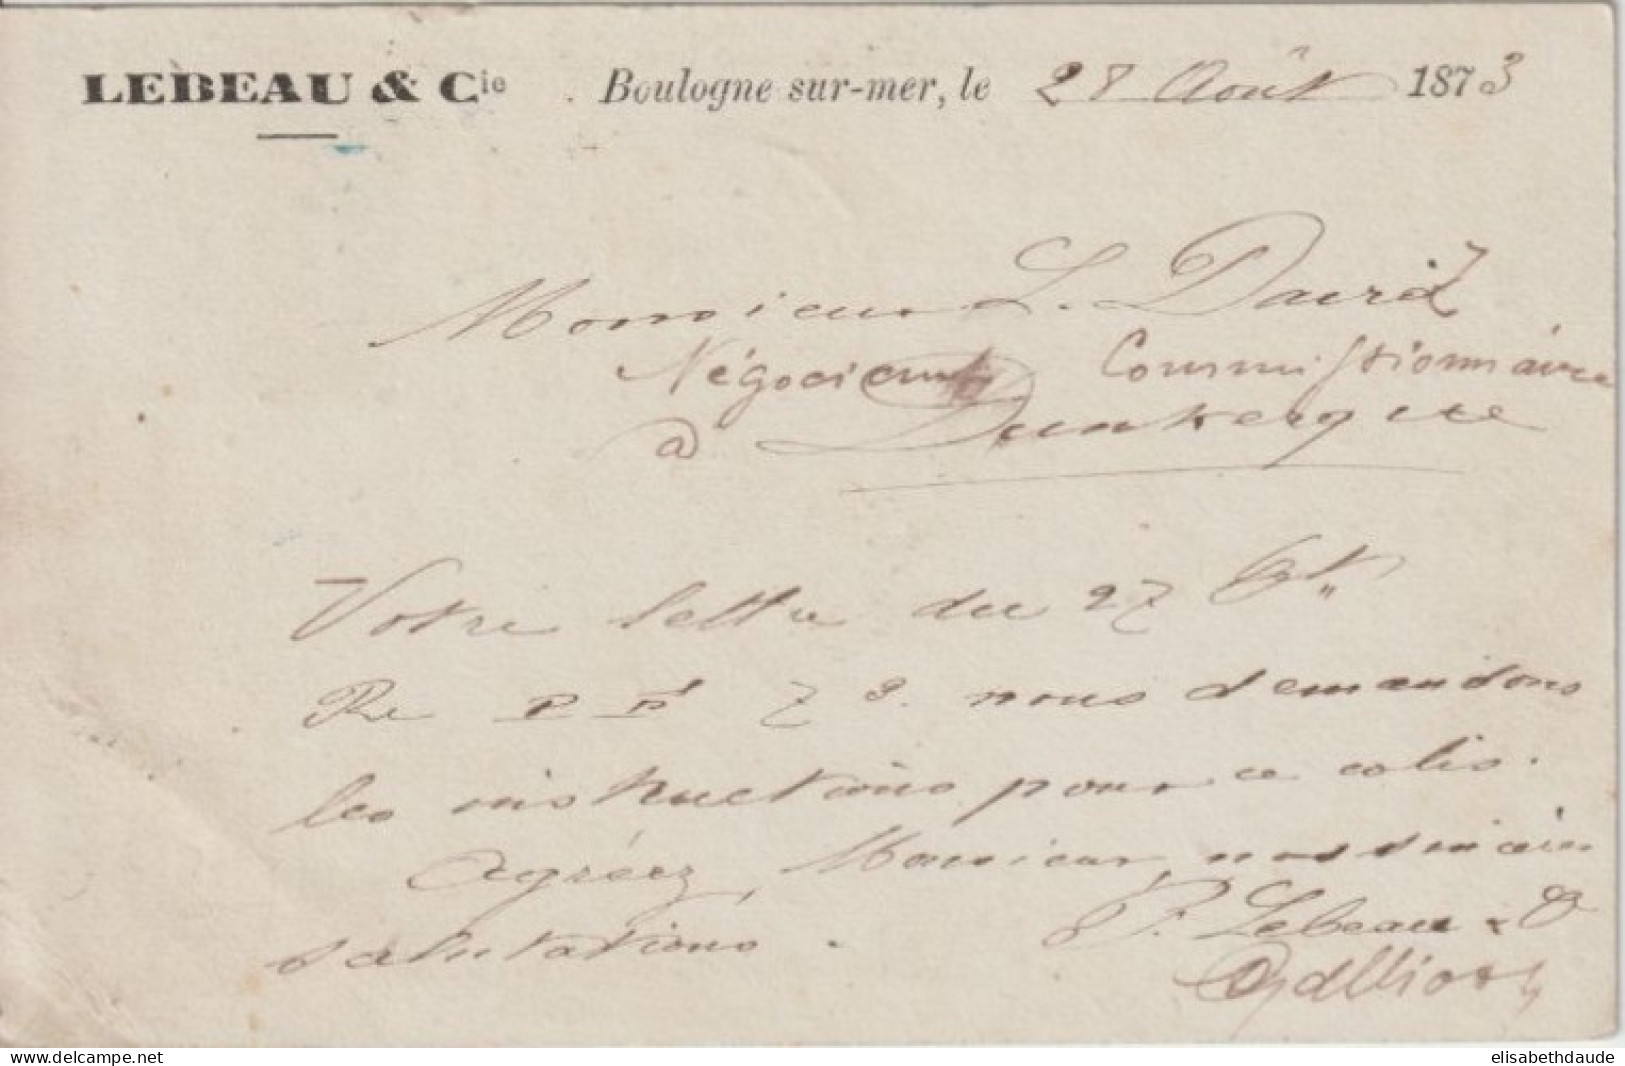 LEBEAU & Cie Boulogne sur-mer, le 28 Août 1873
Monsieur L. David
Négociant Commissionnaire
à Dunkerque
Votre lettre du 27 Ct
Re 73. nous demandons
les instructions pour ce colis.
Agréez, Monsieur, nos sincères
salutations.
P. Lebeau & C
www.delcampe.net
elisabethdaude